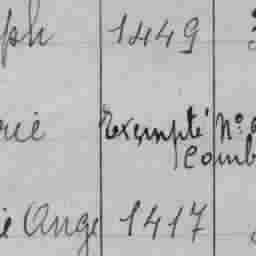 ph 1449
rie Exempté N°
Comb
ie Ange 1417